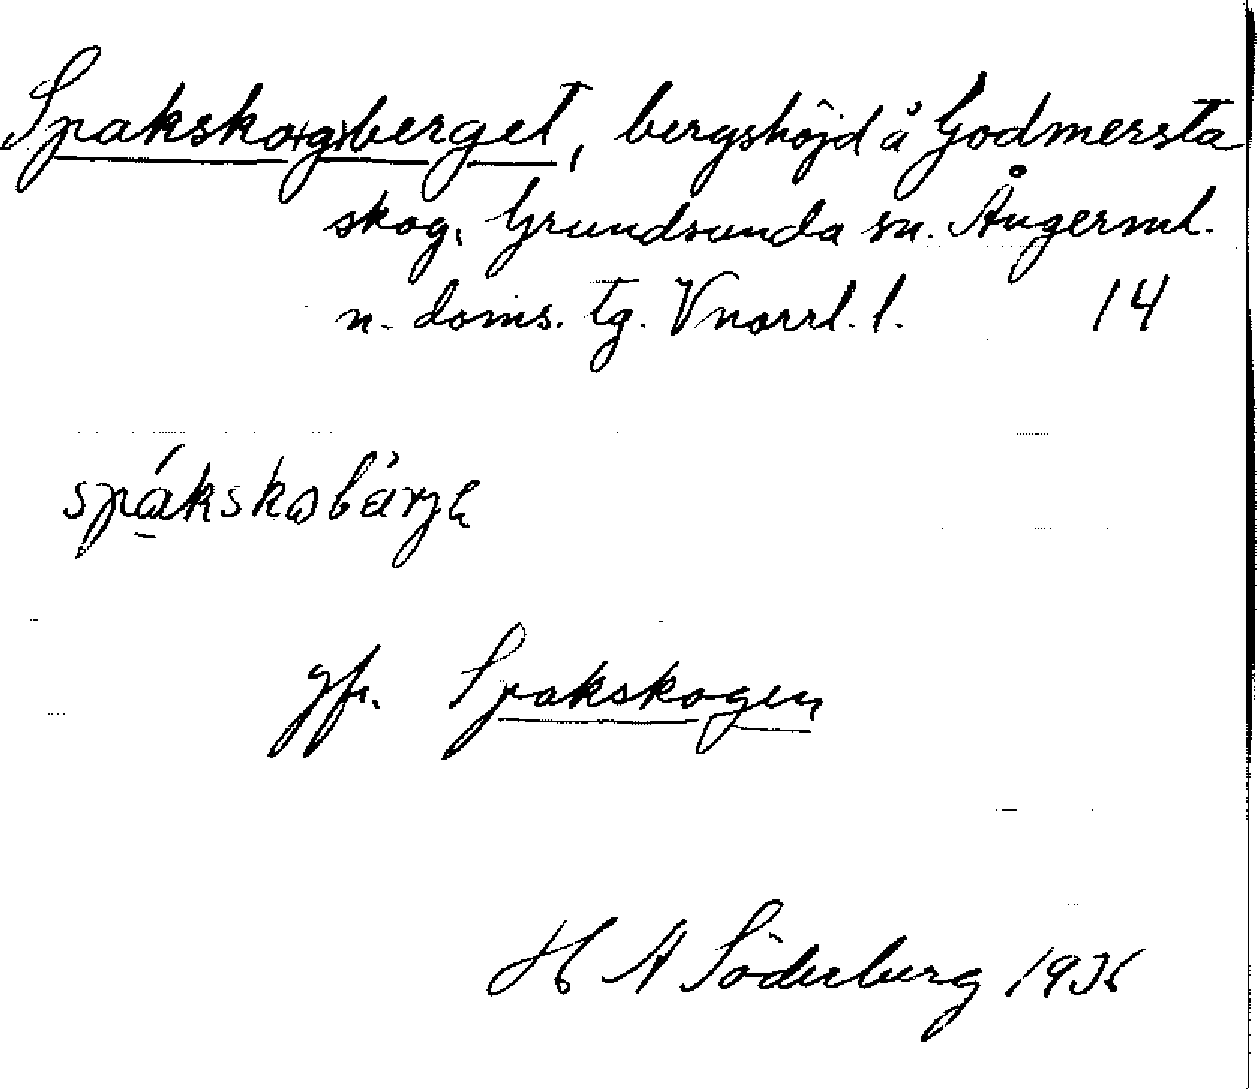 Spaksko(g)berget, bergshöjd å Godmersta
skog, Grundsunda sn. Ångerml.
n. doms. tg. Vnorrl. l. 14
jfr. Spakskogen
H A Söderberg